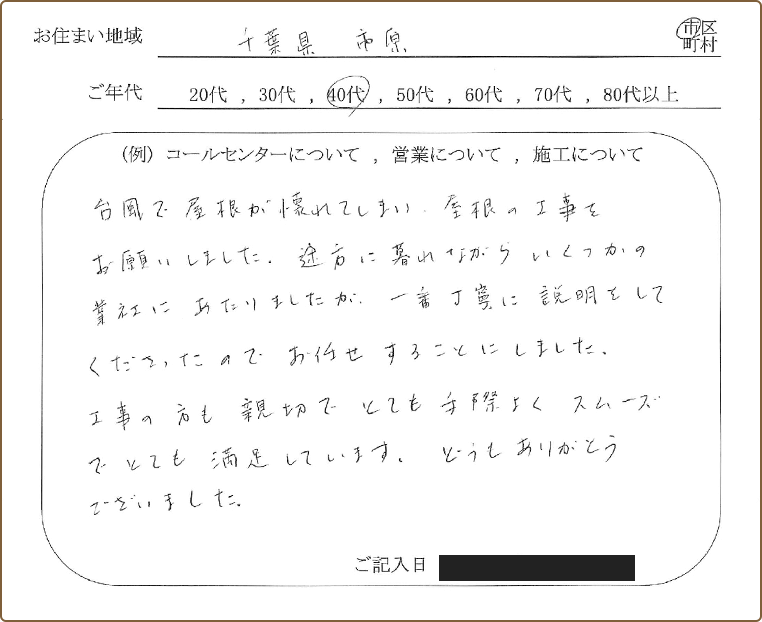 お住まい地域 千葉県 市原 市区町村
ご年代 20代 , 30代 , 40代 , 50代 , 60代 , 70代 , 80代以上
（例）コールセンターについて , 営業について , 施工について
台風で屋根が懐れてしまい、屋根の工事を
お願いしました。途方に暮れながらいくつかの
業社にあたりましたが、一番丁寧に説明をして
くださったのでお任せすることにしました。
工事の方も親切でとても手際よくスムーズ
でとても満足しています。どうもありがとう
でざいました。
ご記入日